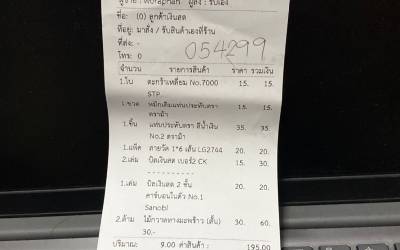 ผู้ขาย : Worapnan ผู้ส่ง : รับเอง
ชื่อ: (0) ลูกค้าเงินสด
ที่อยู่: มาสั่ง / รับสินค้าเองที่ร้าน
ที่ส่ง: -
โทร: 0
054299
จำนวน รายการสินค้า ราคา รวมเงิน
1.ใบ ตะกร้าเหลี่ยม No.7000 15. 15.
STP
1.ขวด หมึกเติมแท่นประทับตรา 15. 15.
ตราม้า
1.ชิ้น แท่นประทับตรา สีน้ำเงิน 35. 35.
No.2 ตราม้า
1.แพ็ค สายวัด 1*6 เส้น LG2744 20. 20.
2.เล่ม บิลเงินสด เบอร์2 CK 15. 30.
1.เล่ม บิลเงินสด 2 ชั้น 20. 20.
คาร์บอนในตัว No.1
Sanobi
2.ด้าม ไม้กวาดทางมะพร้าว (สั้น) 30. 60.
30.-
ปริมาณ: 9.00 ค่าสินค้า : 195.00